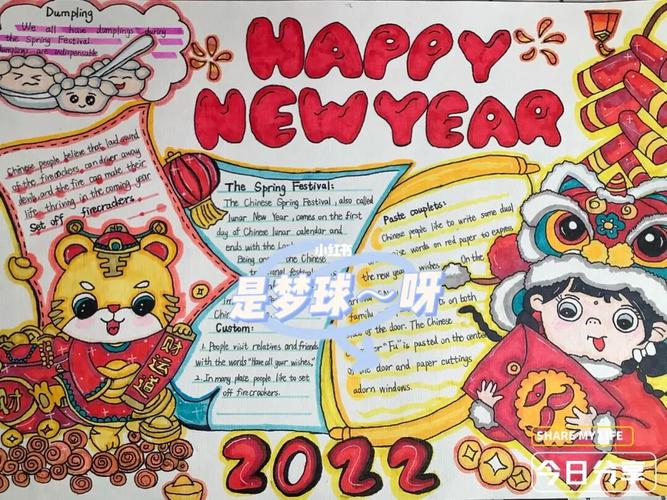 Dumpling
We all have dumplings during
the Spring Festival
dumpling are indispensable
HAPPY
NEW YEAR
Chinese people believe that loud sound
of the firecrackers can drive away
devils and the fire can make their
life thriving in the coming year
Set off firecrackers.
The Spring Festival:
The Chinese Spring Festival, also called
lunar New Year, comes on the first
day of Chinese lunar calendar and
ends with the
Being one Chinese
festival
Custom:
1. People visit relatives and friends
with the words "Have all your wishes,"
2. In many place people like to set
off firecrackers.
Paste couplets:
Chinese people like to write some dual
words on red paper to express
the new year wishes. On the
family on both
of the door. The Chinese
"Fu" is pasted on the center
of the door and paper cuttings
adorn windows.
小红书
是梦球~呀
财运道
财
2022
SHARE MY LIFE
今日分享